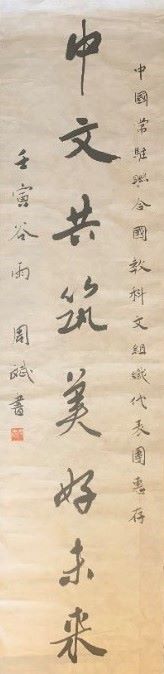 中國常駐聯合國教科文組織代表團惠存
中文共筑美好未来
壬寅谷雨 周斌書